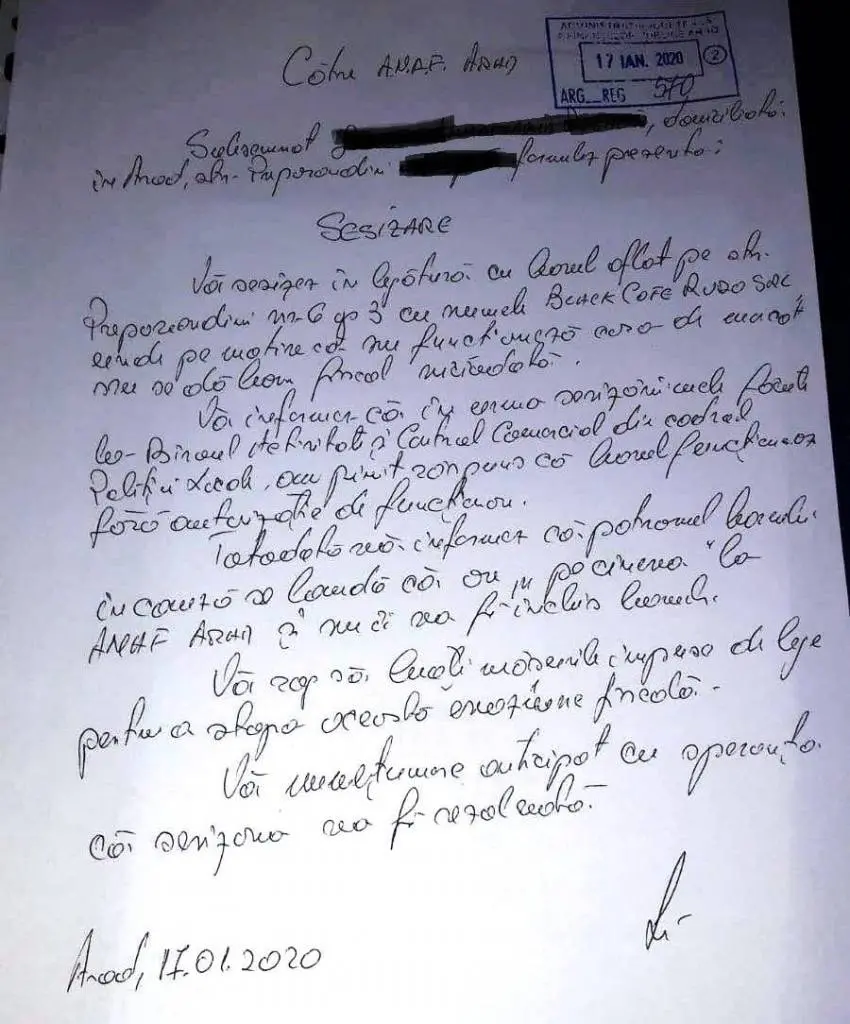 ADMINISTRAȚIA JUDEȚEANĂ A
FINANȚELOR PUBLICE ARAD
17 IAN. 2020 2
ARG__REG 570
Către A.N.A.F. ARAD
Subsemnat, domiciliată
în Arad, str. formulez prezenta:
SESIZARE
Vă sesizez în legătură cu barul aflat pe str.
nr 6 ap 3 cu numele BLACK CAFE RUDO SRL
pe motive că nu funcționează casa de marcat
nu se dă bon fiscal niciodată.
Vă informez că în urma sesizării mele făcute
la Biroul și Control Comercial din cadrul
Poliției Locale, am primit răspuns că barul funcționează
fără autorizație de funcționare.
Totodată vă informez că patronul barului
în cauză se laudă că are "pe cineva" la
ANAF ARAD și nu îi va fi închis barul.
Vă rog să luați măsurile impuse de lege
pentru a stopa această evaziune fiscală.
Vă mulțumesc anticipat cu speranța
că sesizarea va fi rezolvată.
Arad, 17.01.2020